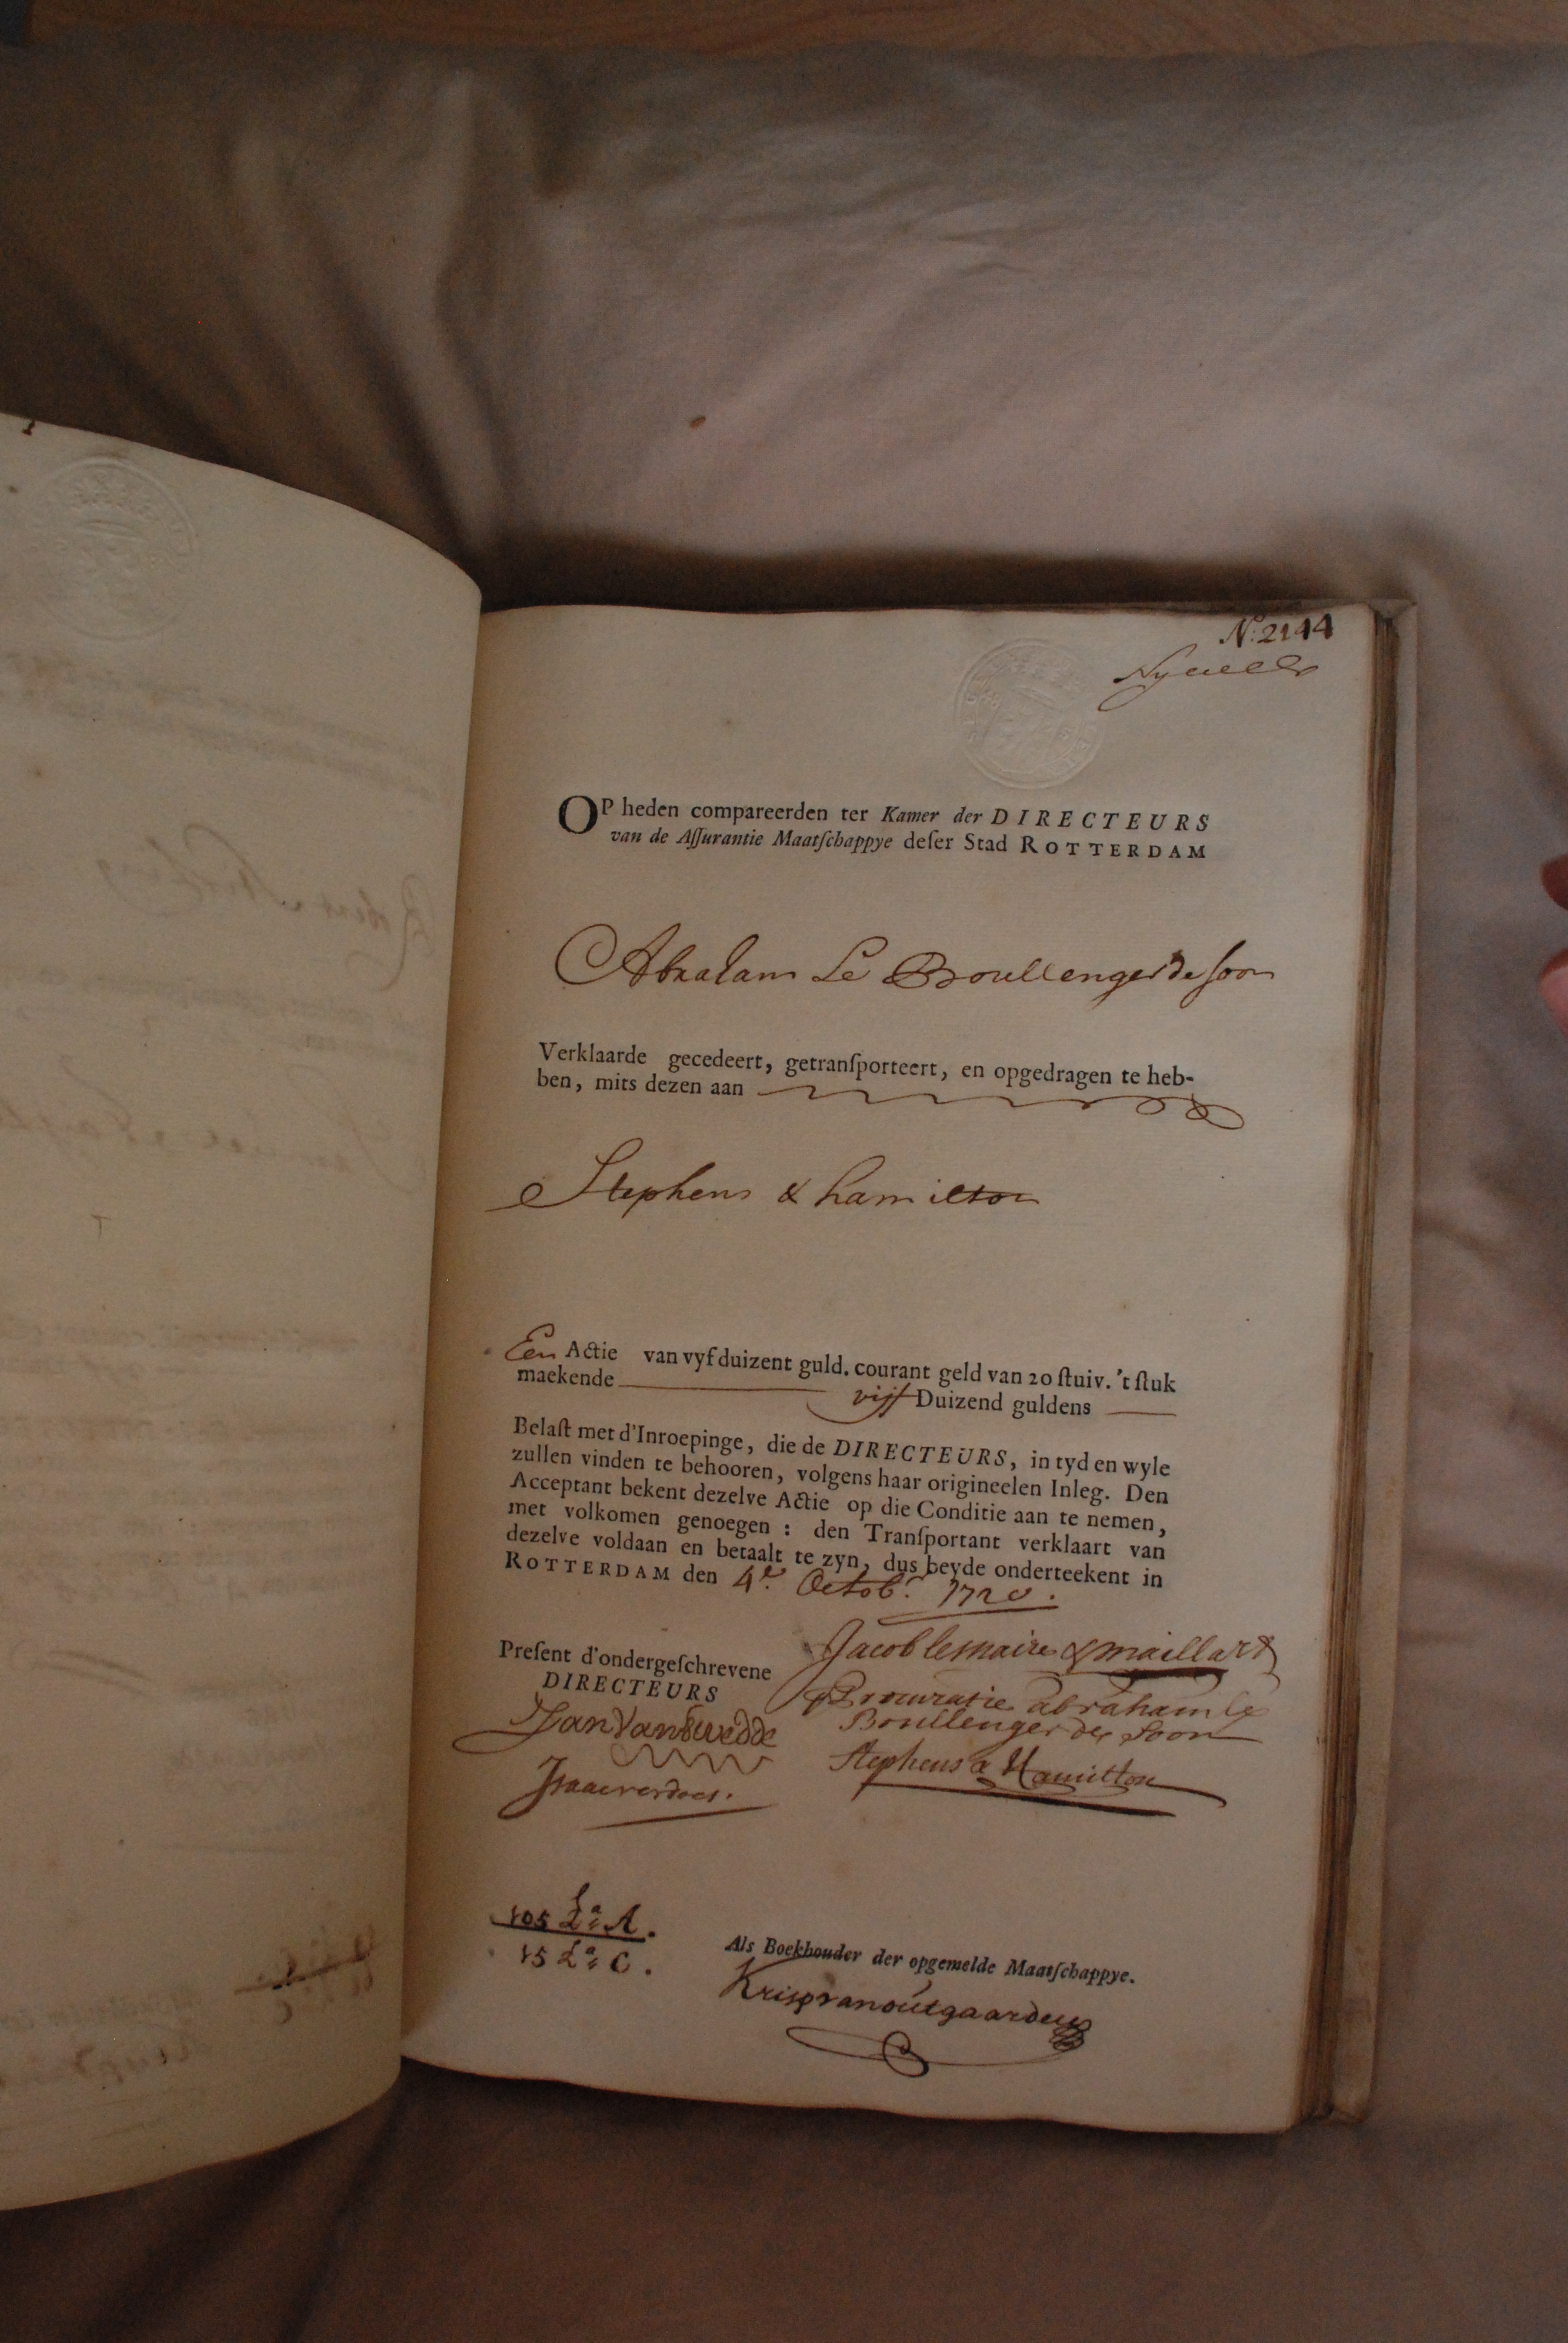 N:2144
OP heden compareerden ter Kamer der DIRECTEURS
van de Aſſurantie Maatſchappye deſer Stad ROTTERDAM
Abraham Le Boullenger de soon
Verklaarde gecedeert, getranſporteert, en opgedragen te heb-
ben, mits dezen aan
Stephens & hamilton
Een Actie van vyf duizent guld. courant geld van 20 ſtuiv. 't ſtuk
maekende vijf Duizend guldens
Belaſt met d'Inroepinge, die de DIRECTEURS, in tyd en wyle
zullen vinden te behooren, volgens haar origineelen Inleg. Den
Acceptant bekent dezelve Actie op die Conditie aan te nemen,
met volkomen genoegen : den Tranſportant verklaart van
dezelve voldaan en betaalt te zyn, dus beyde onderteekent in
ROTTERDAM den 4e. Octob.r 1720.
Jacob lemaire & maillart
Preſent d'ondergeſchrevene
DIRECTEURS
p Procuratie abraham le
Boullenger de Soon
Jan Van Swedde
Stephens & Hamilton
Isaac verdoes.
105 La: A.
15 La: C.
Als Boekhouder der opgemelde Maatſchappye.
Krisp van outgaarden